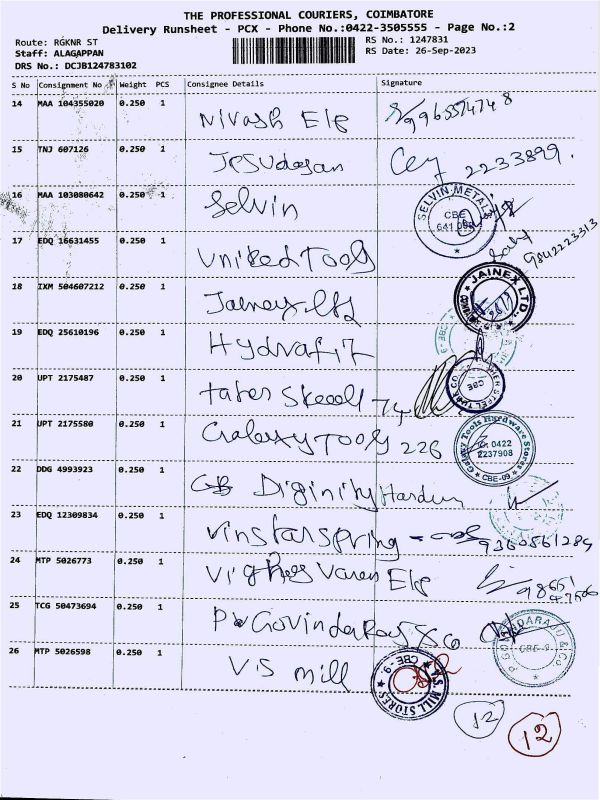 THE PROFESSIONAL COURIERS, COIMBATORE
Delivery Runsheet - PCX - Phone No.:0422-3505555 - Page No.:2
Route: RGKNR ST
RS No.: 1247831
Staff: ALAGAPPAN
RS Date: 26-Sep-2023
DRS No.: DCJB124783102
S No Consignment No Weight PCS Consignee Details Signature
14 MAA 104355020 0.250 1 Nivash Ele
15 TNJ 607126 0.250 1 Jesudasan 2233899.
16 MAA 103080642 0.250 1 Selvin
SELVIN METALS CBE
17 EDQ 16631455 0.250 1 United Tools 9842223313
18 IXM 504607212 0.250 1
JAINEX LTD.
19 EDQ 25610196 0.250 1 Hydrafit
20 UPT 2175487 0.250 1
CBE
21 UPT 2175580 0.250 1 Galaxy Tools 226
Galaxy Tools Hardware Stores 0422 2237908 CBE-09
22 DDG 4993923 0.250 1 Diginity
23 EDQ 12309834 0.250 1 Vinstar spring - 9360561289
24 MTP 5026773 0.250 1
25 TCG 50473694 0.250 1
CBE-9
26 MTP 5026598 0.250 1 Vis mill
MILL STORES CBE-9
12
12